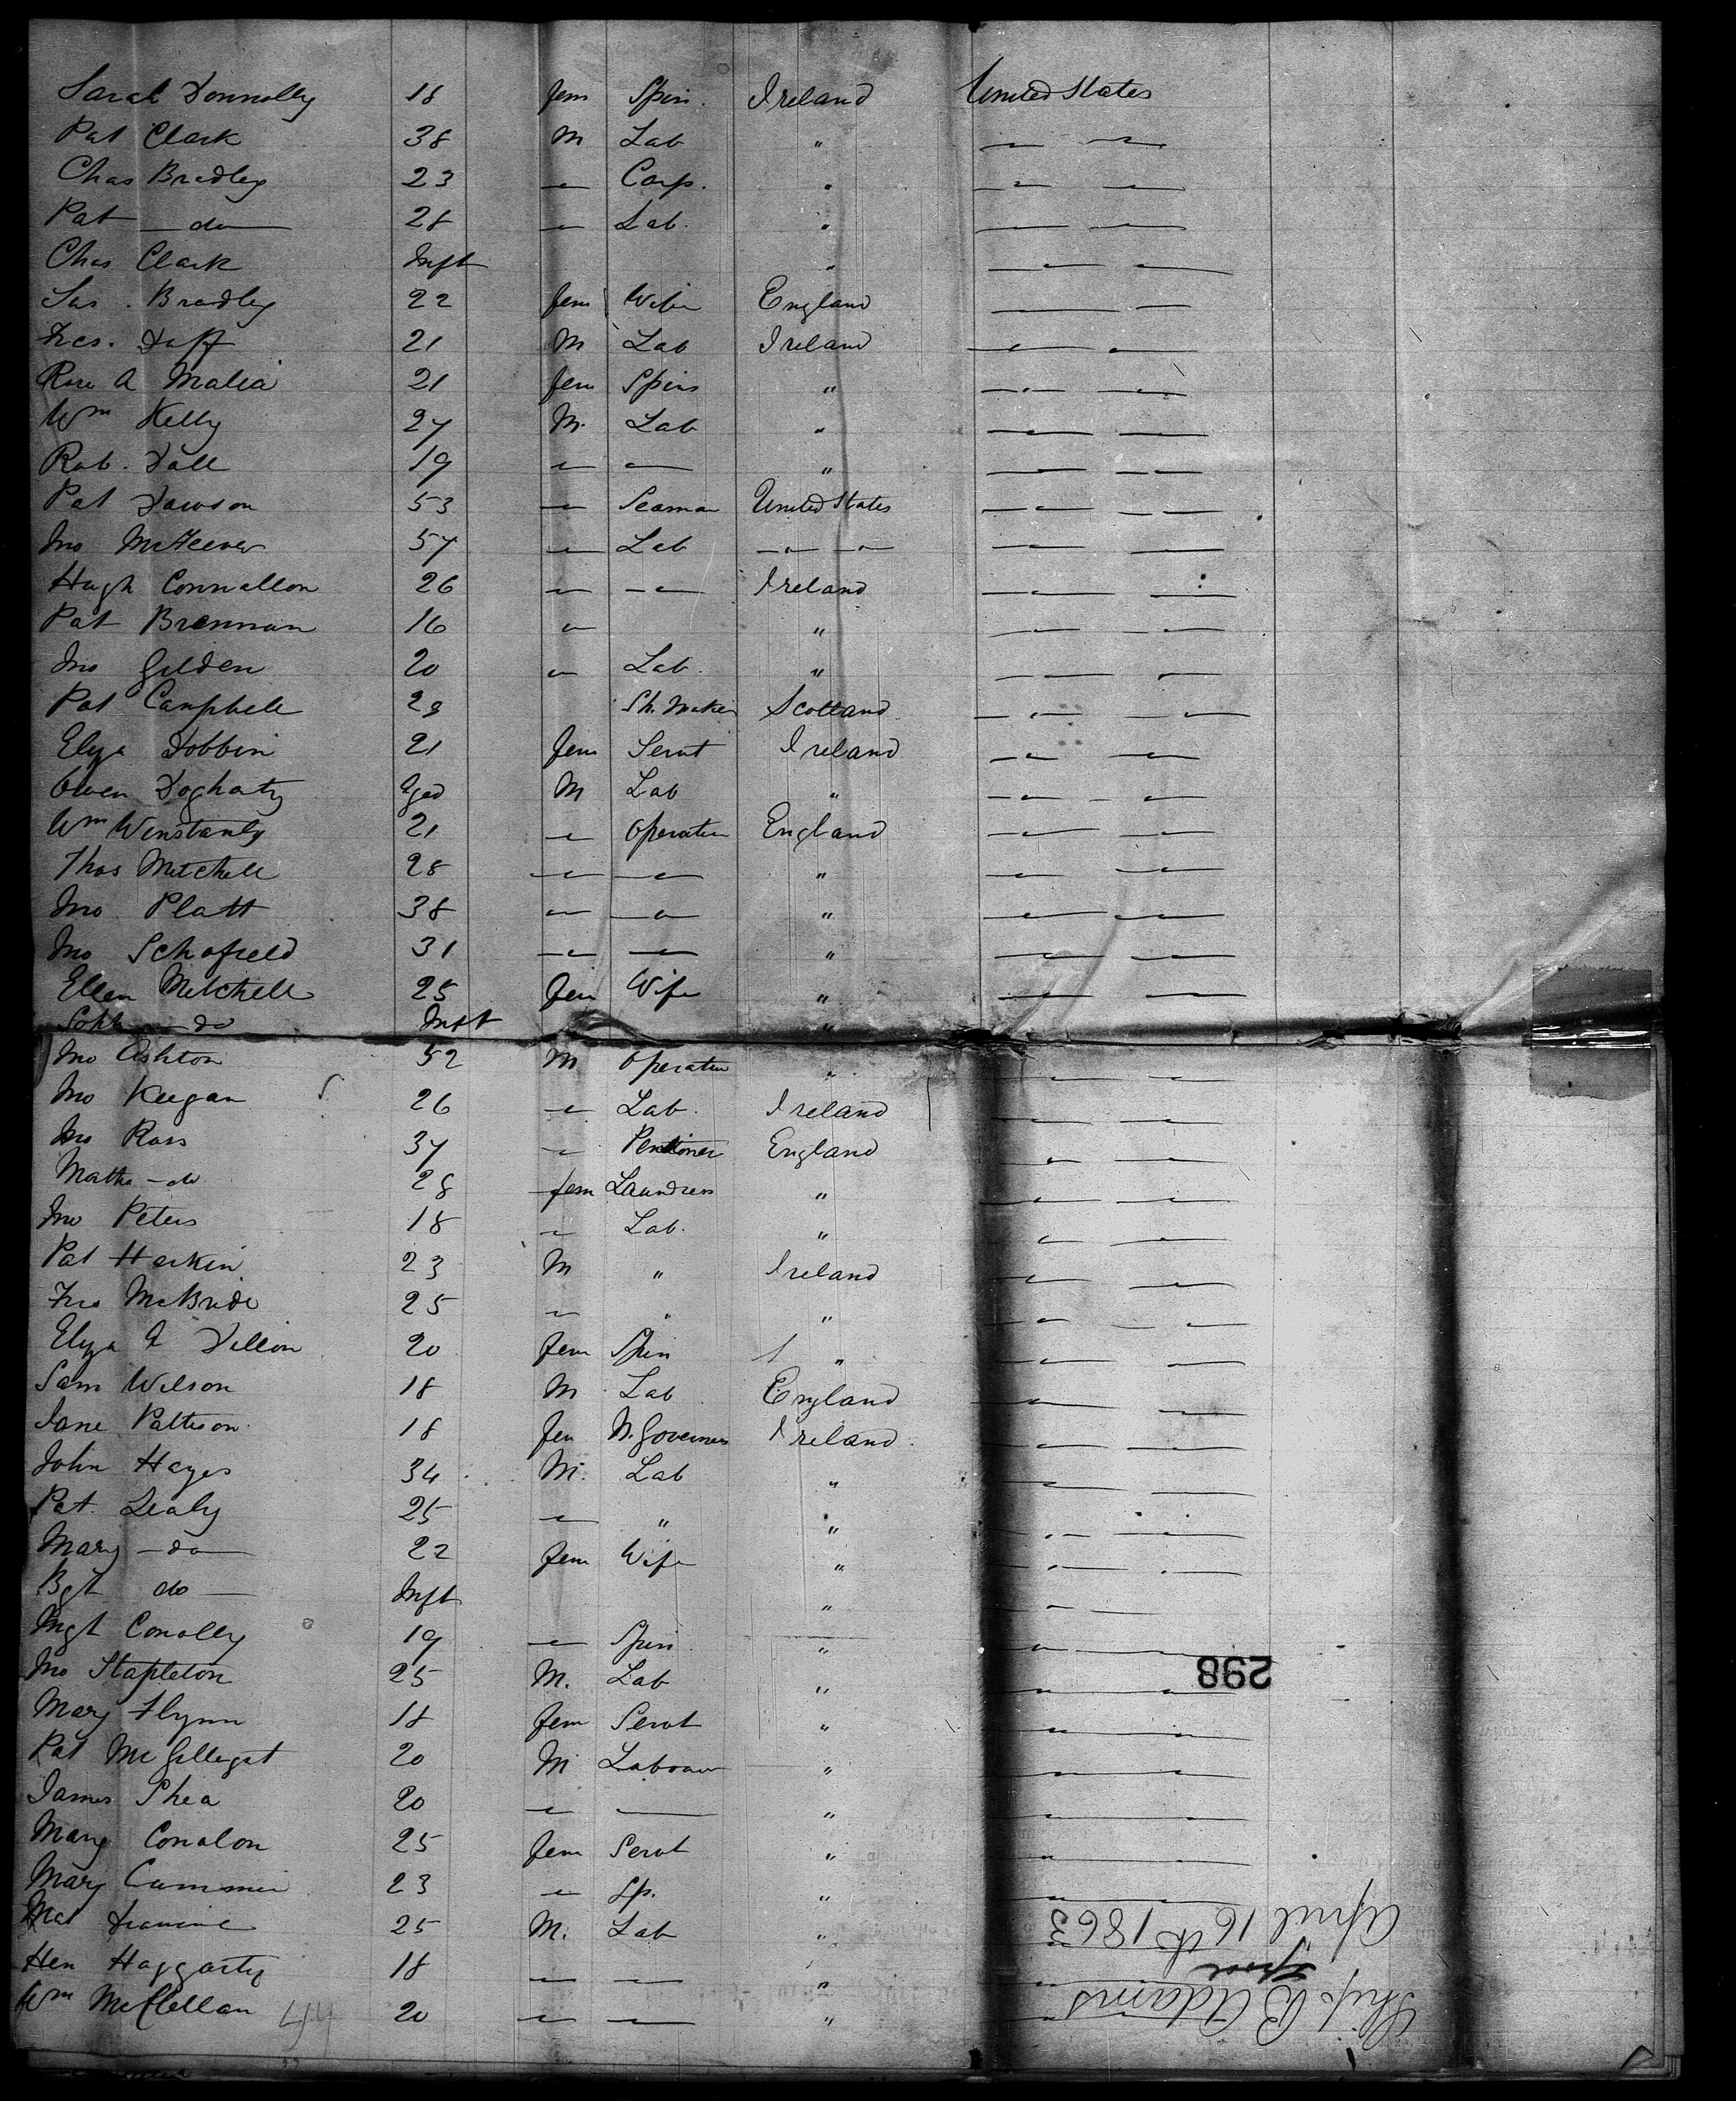 Sarah Donnolly 18 fem Spin. Ireland United States
Pat Clark 38 M Lab " — —
Chas Bradley 23 — Carp. " — —
Pat — do — 28 — Lab. " — —
Chas Clark Inft " — —
Sar. Bradley 22 fem Wife England — —
Fcs. Duff 21 M Lab Ireland — —
Rose A Malia 21 fem Spins " — —
Wm Kelly 27 M. Lab " — —
Rob. Dall 19 — — " — —
Pat Dawson 53 — Seaman United States — —
Jno McKeever 57 — Lab — — — —
Hugh Connallon 26 — — Ireland — —
Pat Brennan 16 — " — —
Jno Gilden 20 — Lab. " — —
Pat Campbell 23 Sh. Maker Scotland — —
Elza Dobbin 21 fem Servt Ireland — —
Owen Dogharty Aged M Lab " — —
Wm Winstanly 21 — Operative England — —
Thos Mitchell 28 — — " — —
Jno Platt 38 — — " — —
Jno Schofield 31 — — " — —
Ellen Mitchell 25 fem Wife " — —
Soph — do Inft "
Jno Ashton 52 M Operative " — —
Jno Keegan 26 — Lab. Ireland — —
Jno Ross 37 — Pentioner England — —
Martha — do 28 fem Laundress " — —
Jno Peters 18 — Lab. " — —
Pat Harkin 23 M " Ireland — —
Frs McBride 25 — " " — —
Elza A Dillon 20 fem Spin " — —
Sam Wilson 18 M Lab England — —
Jane Pattison 18 fem N. Governess Ireland — —
John Hayes 34 M. Lab " — —
Pat Lealy 25 — " " — —
Mary — do — 22 fem Wife " — —
Bgt do — Inft " — —
Mgt Conolly 19 — Spin " — —
Jno Stapleton 25 M. Lab " — —
298
Mary Flynn 18 fem Servt " — —
Pat McGillegat 20 M Labourer " — —
James Shea 20 — — " — —
Mary Conolon 25 fem Servt " — —
Mary Cummin 23 — Sp. " — —
25 M. Lab " —
Hen Haggarty 18 — — " —
Wm McClellan 44 20 — — " —
Ship B Adams
Lpool
April 16th 1863